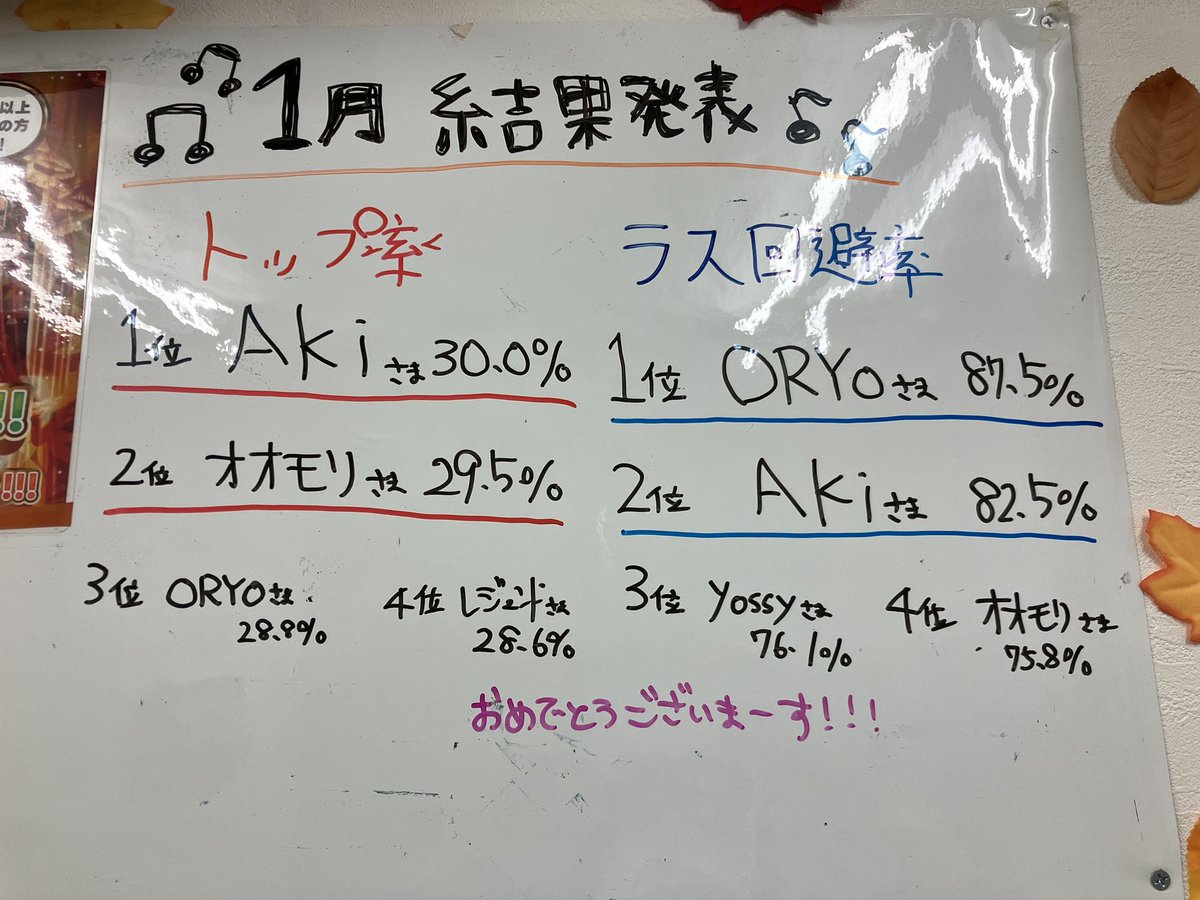 以上
の方
!
1月 結果発表
トップ率
1位 Akiさま 30.0%
2位 オオモリさま 29.5%
3位 ORYoさま
28.8%
4位 レジェンドさま
28.6%
ラス回避率
1位 ORYoさま 87.5%
2位 Akiさま 82.5%
3位 yossyさま
76.1%
4位 オオモリさま
75.8%
おめでとうございまーす!!!
!!
!!!